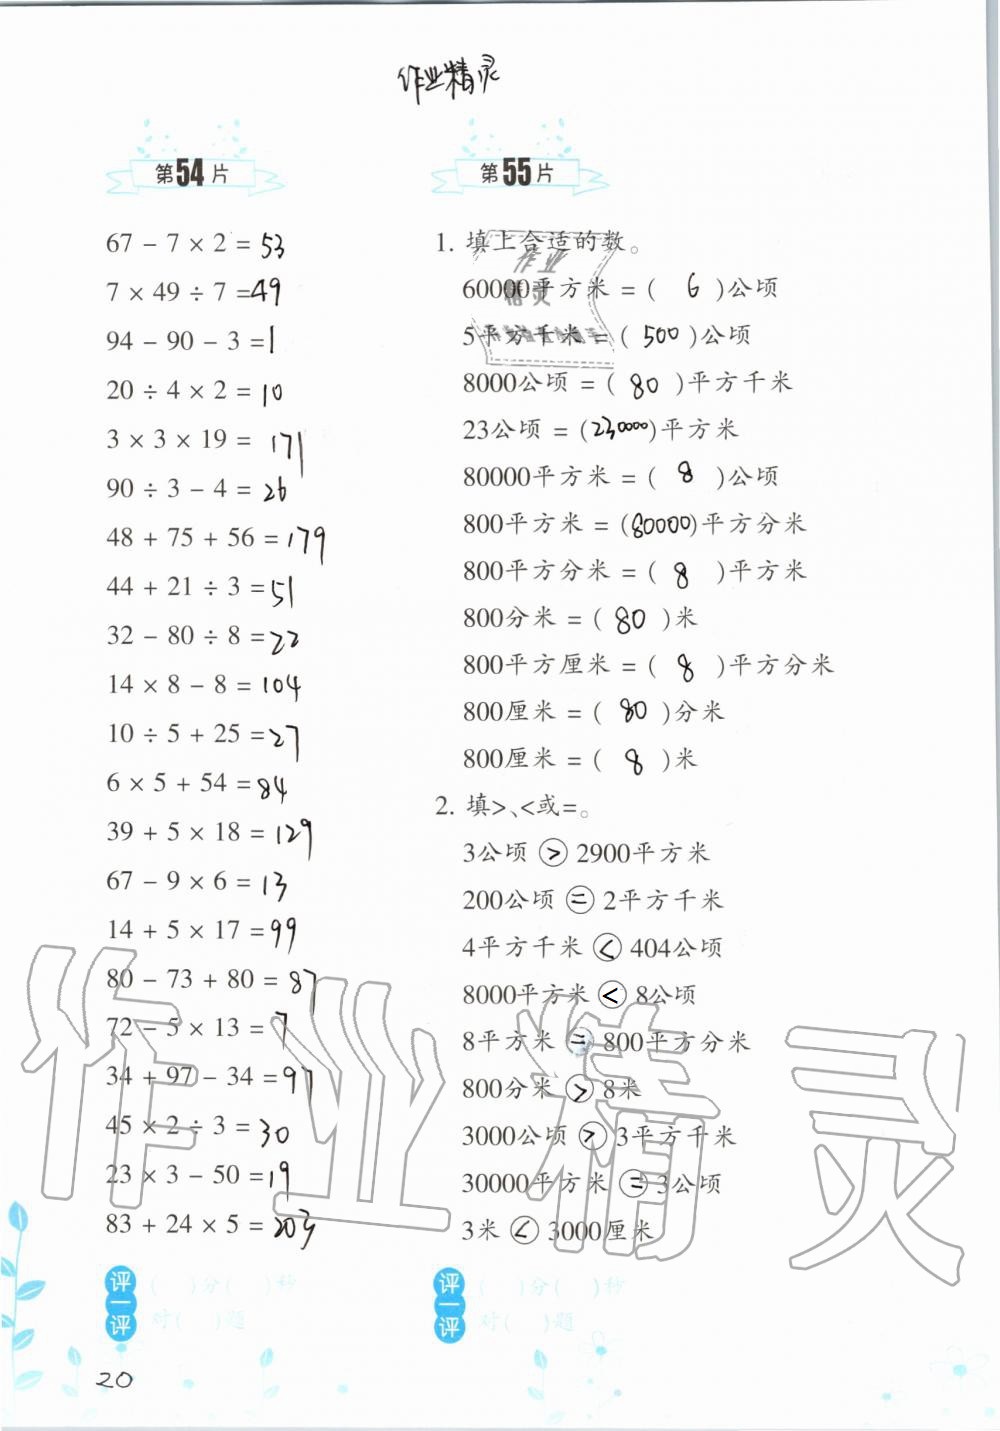 作业精灵
第54片
67 − 7 × 2 = 53
7 × 49 ÷ 7 = 49
94 − 90 − 3 = 1
20 ÷ 4 × 2 = 10
3 × 3 × 19 = 171
90 ÷ 3 − 4 = 26
48 + 75 + 56 = 179
44 + 21 ÷ 3 = 51
32 − 80 ÷ 8 = 22
14 × 8 − 8 = 104
10 ÷ 5 + 25 = 27
6 × 5 + 54 = 84
39 + 5 × 18 = 129
67 − 9 × 6 = 13
14 + 5 × 17 = 99
80 − 73 + 80 = 87
72 − 5 × 13 = 7
34 + 97 − 34 = 97
45 × 2 ÷ 3 = 30
23 × 3 − 50 = 19
83 + 24 × 5 = 203
评一评
( )分( )秒
对( )题
20
第55片
1. 填上合适的数。
60000平方米 = ( 6 )公顷
5平方千米 = ( 500 )公顷
8000公顷 = ( 80 )平方千米
23公顷 = (230000)平方米
80000平方米 = ( 8 )公顷
800平方米 = (80000)平方分米
800平方分米 = ( 8 )平方米
800分米 = ( 80 )米
800平方厘米 = ( 8 )平方分米
800厘米 = ( 80 )分米
800厘米 = ( 8 )米
2. 填>、<或=。
3公顷 > 2900平方米
200公顷 = 2平方千米
4平方千米 < 404公顷
8000平方米 < 8公顷
8平方米 = 800平方分米
800分米 > 8米
3000公顷 > 3平方千米
30000平方米 = 3公顷
3米 < 3000厘米
评一评
( )分( )秒
对( )题
作业精灵
作业
精灵